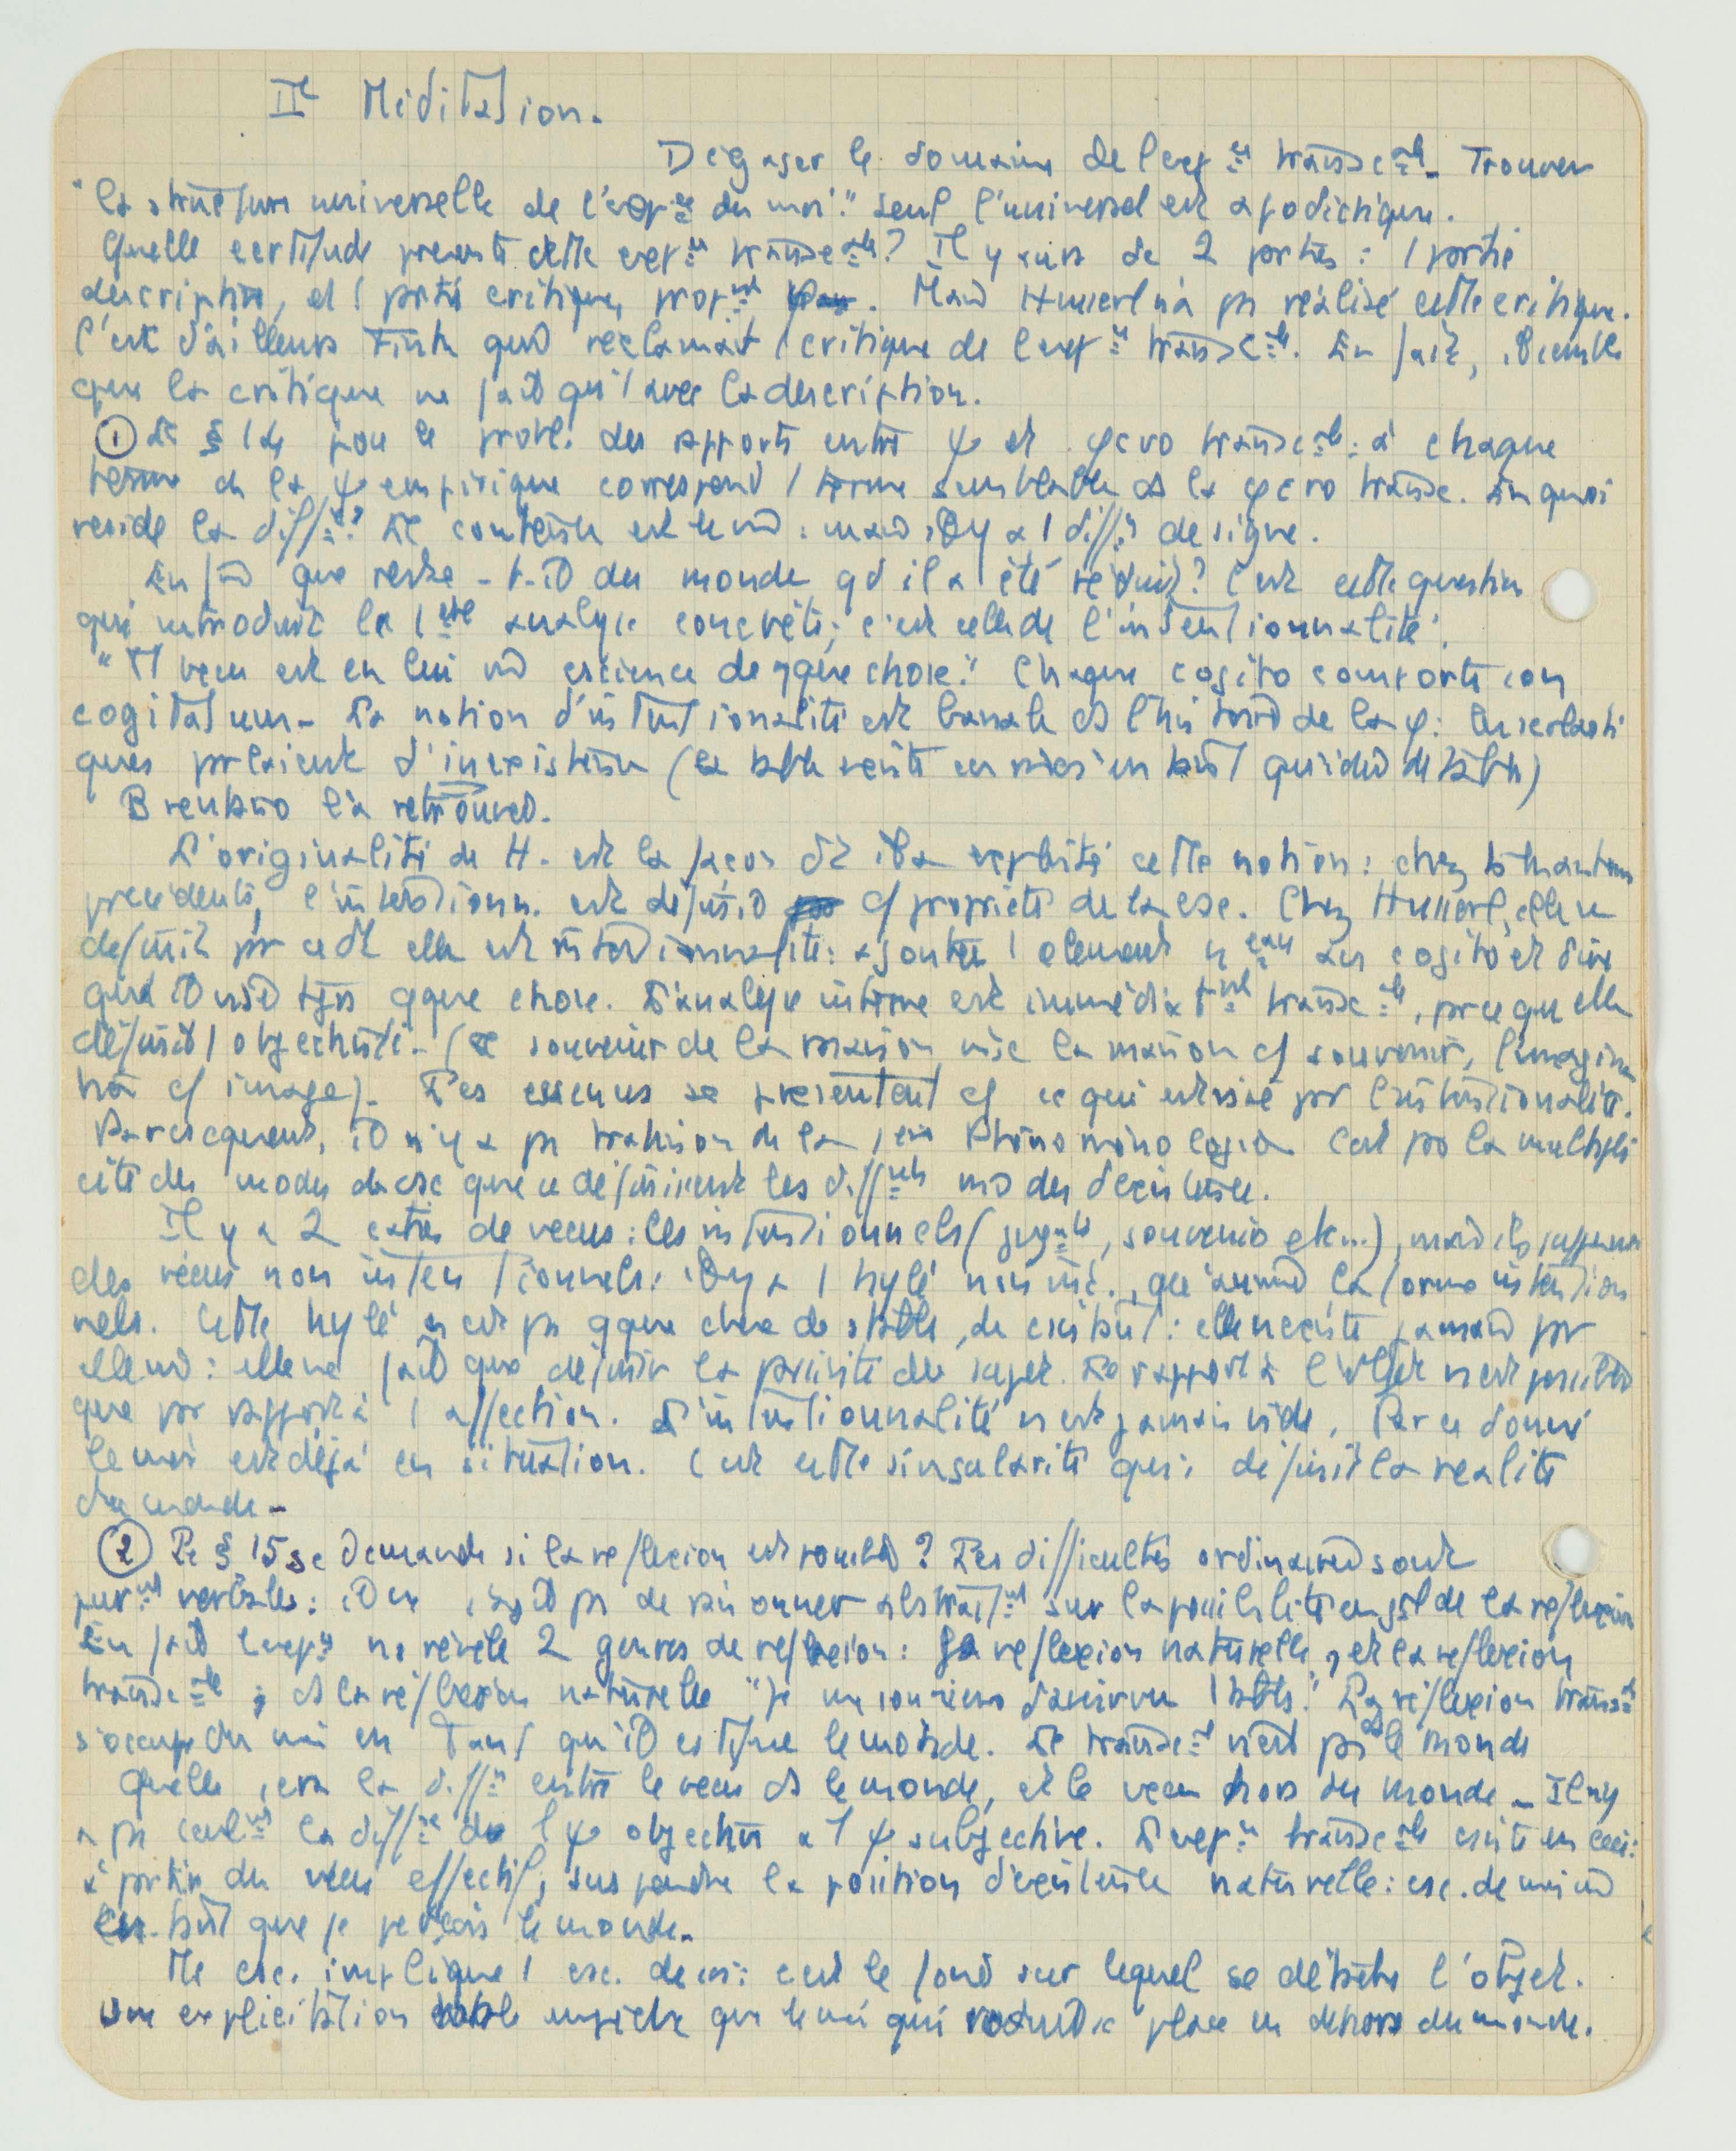 IIe Méditation.
Dégager le domaine de l'expce transcale. Trouver
"la structure universelle de l'expce du moi." Seul l'universel est apodictique.
Quelle certitude présente cette expce transcale? Il y aura de 2 parties : 1 partie
descriptive, et 1 partie critique, propmt. Mais Husserl n'a ps réalisé cette critique.
C'est d'ailleurs Fink qui réclamait 1 critique de l'expce transcale. En fait, il semble
que la critique ne fait qu'1 avec la description.
① Le § 14 pose le probl. des rapports entre ψ et φéno transcale : à chaque
terme de la ψ empirique correspond 1 terme semblable ds la φéno transc. En quoi
réside la diffce? Le contenu est le m̂ : mais il y a 1 diffce de signe.
En fait que reste-t-il du monde qd il a été réduit? C'est cette question
qui introduit la 1ère analyse concrète; c'est celle de l'intentionnalité.
"Tt vécu est en lui m̂ cscience de qque chose." Chaque cogito comporte son
cogitatum. La notion d'intentionalité est banale ds l'histoire de la φ : les scolasti
ques parlaient d'inexistence (la table existe en moi en tant qu'idée de table)
Brentano l'a retrouvée.
L'originalité de H. est la façon dt il a exploité cette notion : chez les auteurs
précédents, l'intentionn. est définie cf propriété de la csc. Chez Husserl, elle se
définit par ce dt elle est intentionnalité : ajouter 1 élément nveau au cogito et dire
qu'il vise tjrs qque chose. L'analyse interne est immédiatmt transcale, parce qu'elle
définit 1 objectivité. (le souvenir de la maison vise la maison cf souvenir, l'imagina
tion cf image). Les essences se présentent cf ce qui est visé par l'intentionalité.
Par cséquent, il n'y a ps trahison de la 1ère Phénoménologie. C'est par la multipli
cité des modes de csc que se définissent les diffnts modes d'existence.
Il y a 2 cettes de vécus : les intentionnels (jugmts, souvenirs etc...), mais ils supposent
des vécus non intentionnels : il y a 1 hylé, qu'anime la forme intention
nelle. Cette hylé n'est ps qque chose de stable, de csistant : elle n'existe jamais par
elle m̂ : elle ne fait que définir la passivité du sujet. Le rapport à l'objet n'est possible
que par rapport à 1 affection. L'intentionnalité n'est jamais vide. Par ce donné
le moi est déjà en situation. C'est cette singularité qui définit la réalité
du monde.
② Le § 15 se demande si la réflexion est possible? Les difficultés ordinaires sont
purmt verbales : il ne s'agit ps de raisonner abstraitmt sur la possibilité en gal de la réflexion
En fait l'expce ns révèle 2 genres de réflexion : la réflexion naturelle, et la réflexion
transcale ; ds la réflexion naturelle "je me souviens d'avoir vu 1 table." La réflexion transcale
s'occupe du moi en tant qu'il cstitue le monde. Le transcal n'est pas ds le monde
Quelle sera la diffce entre le vécu ds le monde, et le vécu hors du monde. Il n'y
a ps seulmt la diffce de 1 ψ objective à 1 ψ subjective. L'expce transcale csiste en ceci :
à partir du vécu effectif, suspendre la position d'existence naturelle : csc. de moi m̂
en tant que je perçois le monde.
Tte csc. implique 1 csc. de soi : c'est le fond sur lequel se détache l'objet.
Une explicitation totale empêche que le moi qui réduit se place en dehors du monde.